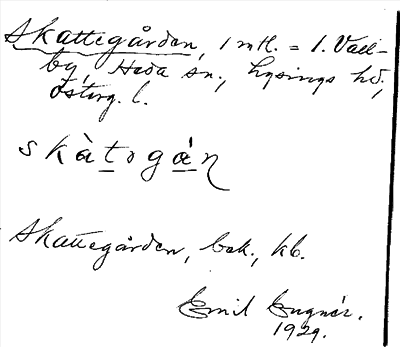 Skattegården, 1 mtl. = 1. Väll-
by, Heda sn., Lysings hd,
Österg. l.
skàtogán
Skattegården, bok., kb.
Emil Eugnér.
1929.